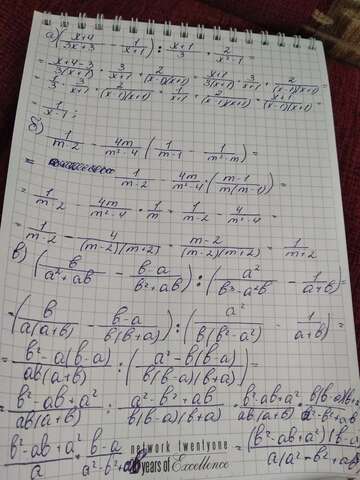 а) (x+4/3x+3 - 1/x+1) : x+1/3 · 2/x²-1 =
= x+4-3/3(x+1) · 3/x+1 · 2/(x-1)(x+1) = x+1/3(x+1) · 3/x+1 · 2/(x-1)(x+1) =
= 1/3 · 3/x+1 · 2/(x-1)(x+1) = 1/x+1 · 2/(x-1)(x+1) · x+1/(x-1)(x+1) =
1/x-1;
б) 1/m-2 - 4m/m²-4 (1/m-1 - 1/m²-m) =
= 1/m-2 - 4m/m²-4 · (m-1/m(m-1)) =
= 1/m-2 - 4m/m²-4 · 1/m = 1/m-2 - 4/m²-4 =
= 1/m-2 - 4/(m-2)(m+2) = m-2/(m-2)(m+2) = 1/m+2
в) (b/a²+ab - b-a/b²+ab) : (a²/b³-a²b - 1/a+b) =
= (b/a(a+b) - b-a/b(b+a)) : (a²/b(b²-a²) - 1/a+b) =
= b²-a(b-a)/ab(a+b) : (a²-b(b-a)/b(b-a)(b+a)) =
= b²-ab+a²/ab(a+b) : a²-b²+ab/b(b-a)(b+a) = b²-ab+a²/ab(a+b) · b(b-a)(b+a)/a²-b²+ab
b²-ab+a²/a · b-a/a²-b²+ab = (b²-ab+a²)(b-a)/a(a²-b²+ab)
network twentyone
years of Excellence